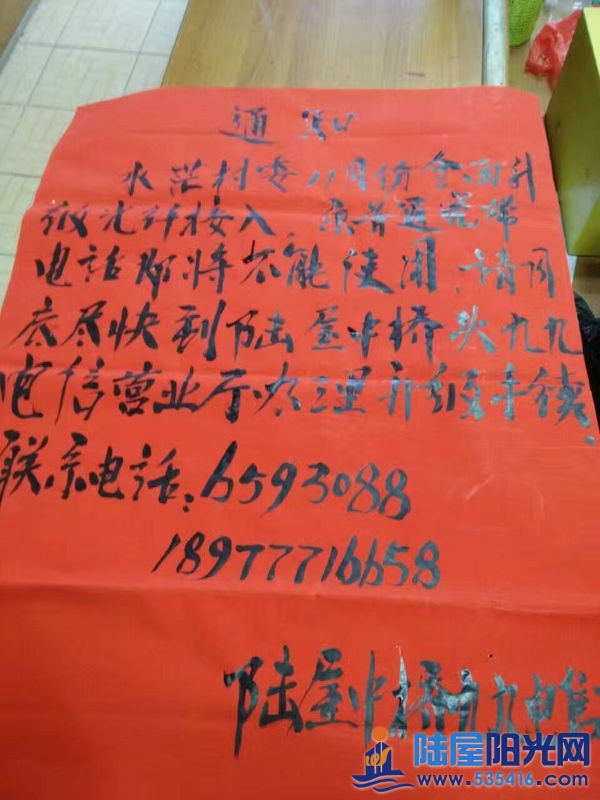 通知
水茫村委11月份全面升
级光纤接入，原普通宽带
电话即将不能使用，请用
户尽快到陆屋中桥头九九
电信营业厅办理升级手续。
联系电话：6593088
18977716658
陆屋中桥九九电信
陆屋阳光网
www.535416.com